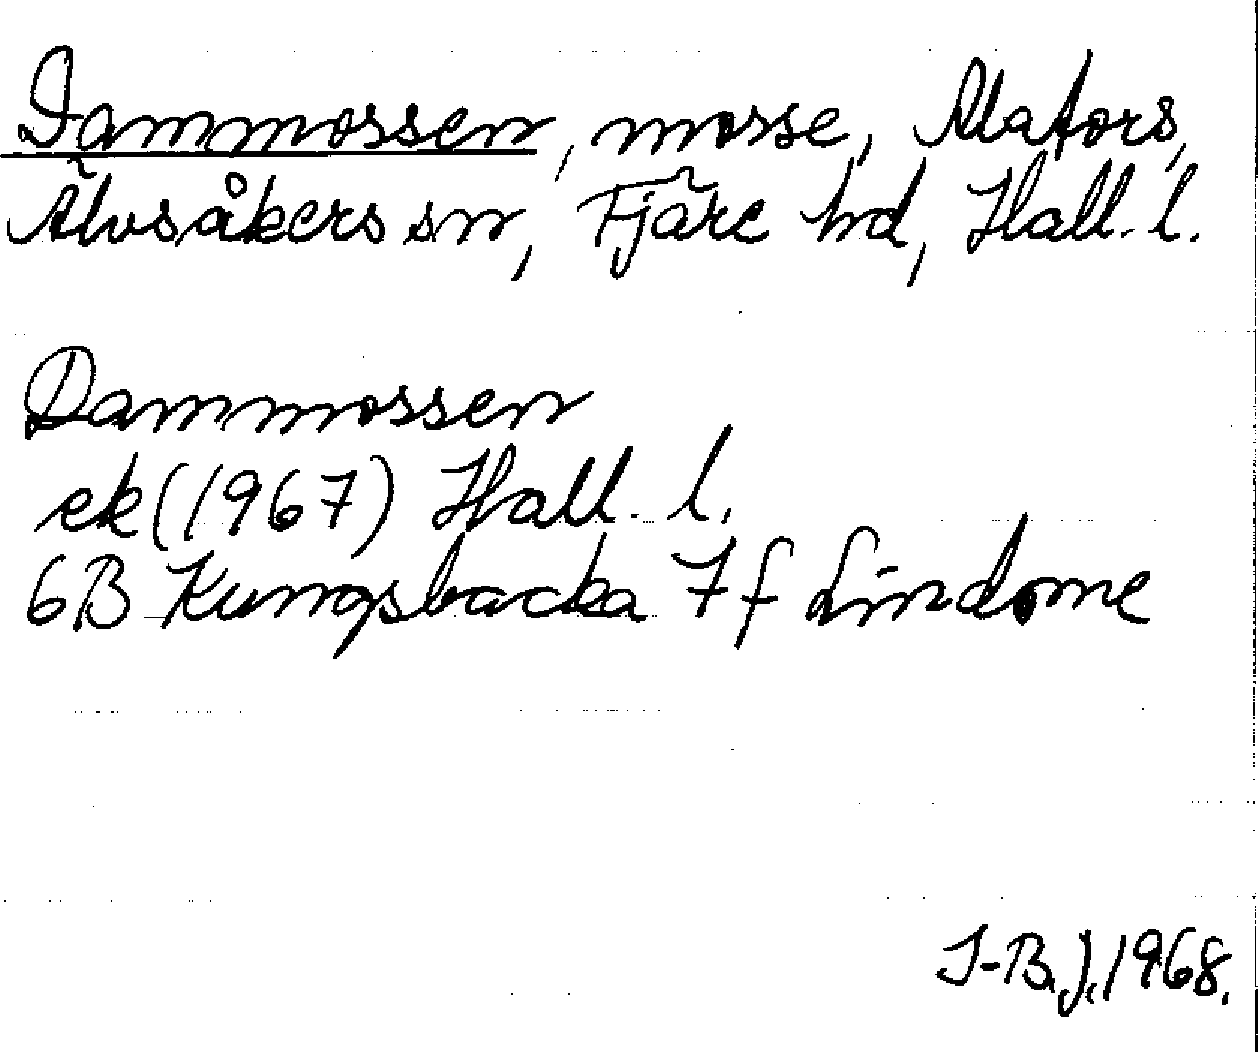 Dammossen, mosse, Alafors,
Älvsåkers sn, Fjäre hd, Hall. l.
Dammossen
ek (1967) Hall. l.
6B Kungsbacka 7f Lindome
I-B.J. 1968.